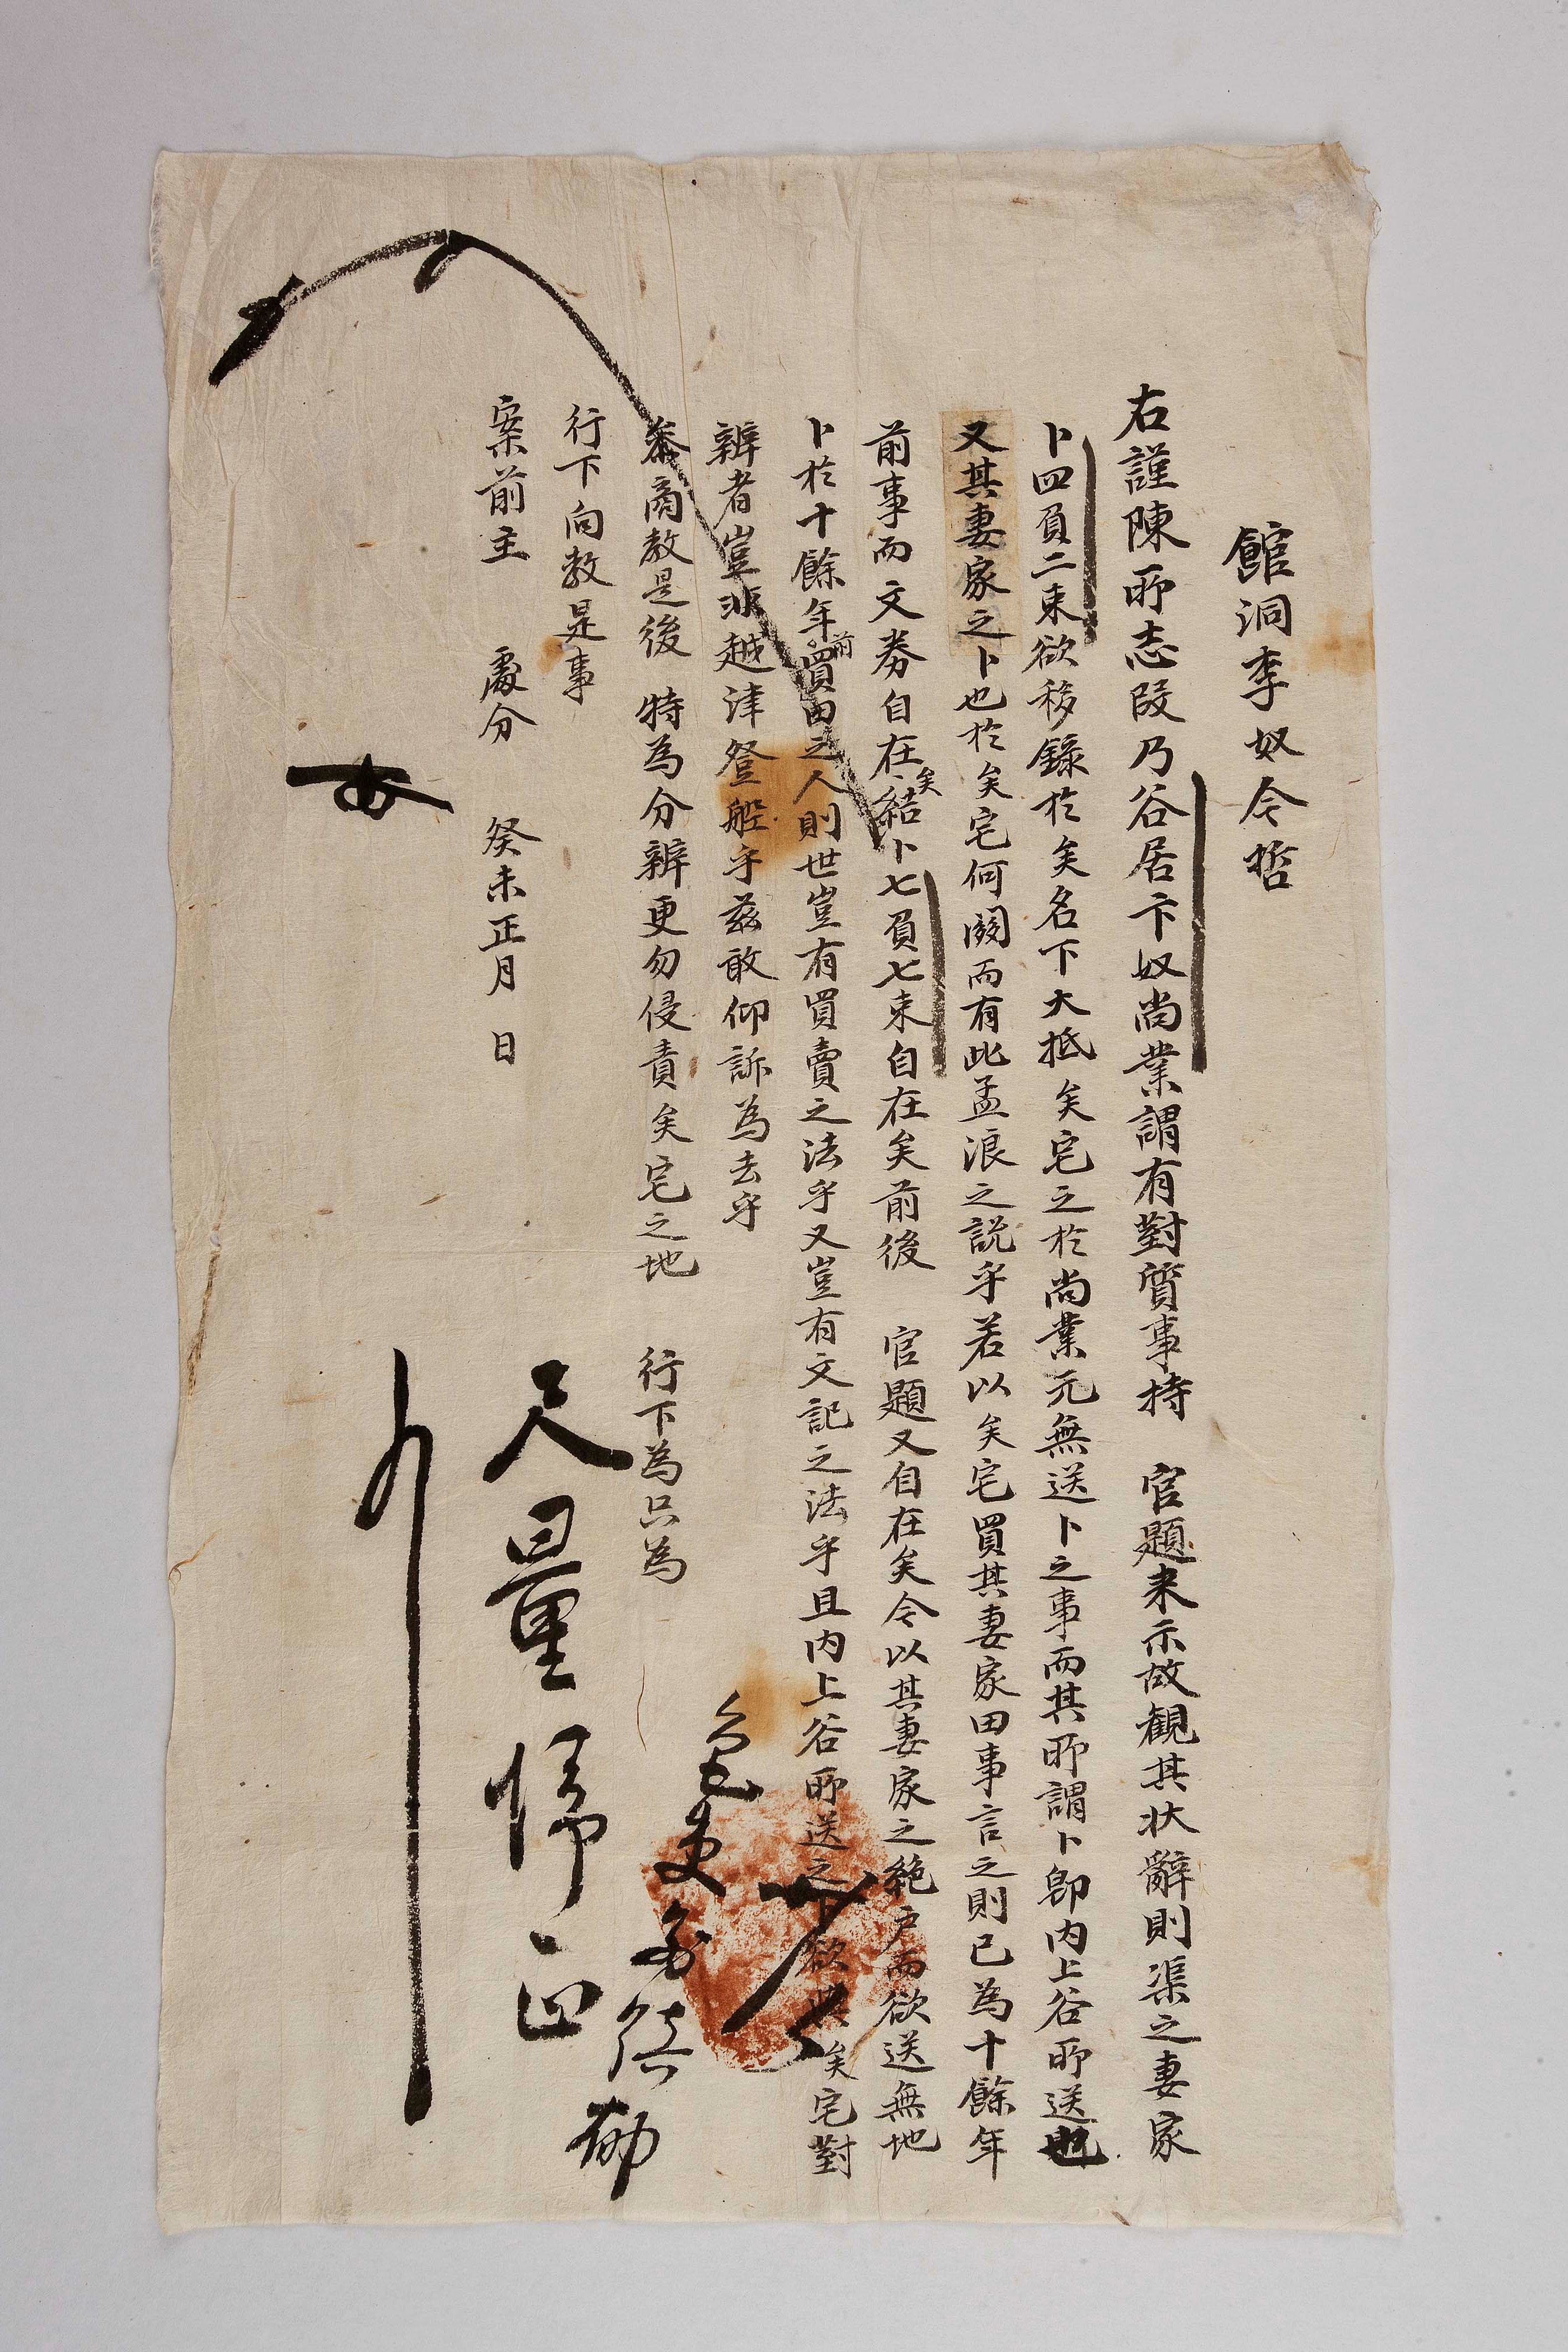 館洞李奴今哲
右謹陳所志段乃谷居卞奴尚業謂有對質事持 官題来示故觀其状辭則渠之妻家
卜四負二束欲移錄於矣名下大抵矣宅之於尚業元無送卜之事而其所謂卜卽内上谷所送也
又其妻家之卜也於矣宅何関而有此孟浪之説乎若以矣宅買其妻家田事言之則已為十餘年
前事而文券自在矣結卜七負七束自在矣前後 官題又自在矣今以其妻家之絶戶而欲送無地
卜於十餘年前買田之人則世豈有買賣之法乎又豈有文記之法乎且内上谷所送之卜欲與矣宅對
辨者豈非越津登船乎玆敢仰訴為去乎
叅商敎是後 特為分辨更勿侵責矣宅之地 行下為只為
行下向敎是事
案前主 處分 癸未正月 日
尺量歸正
色吏